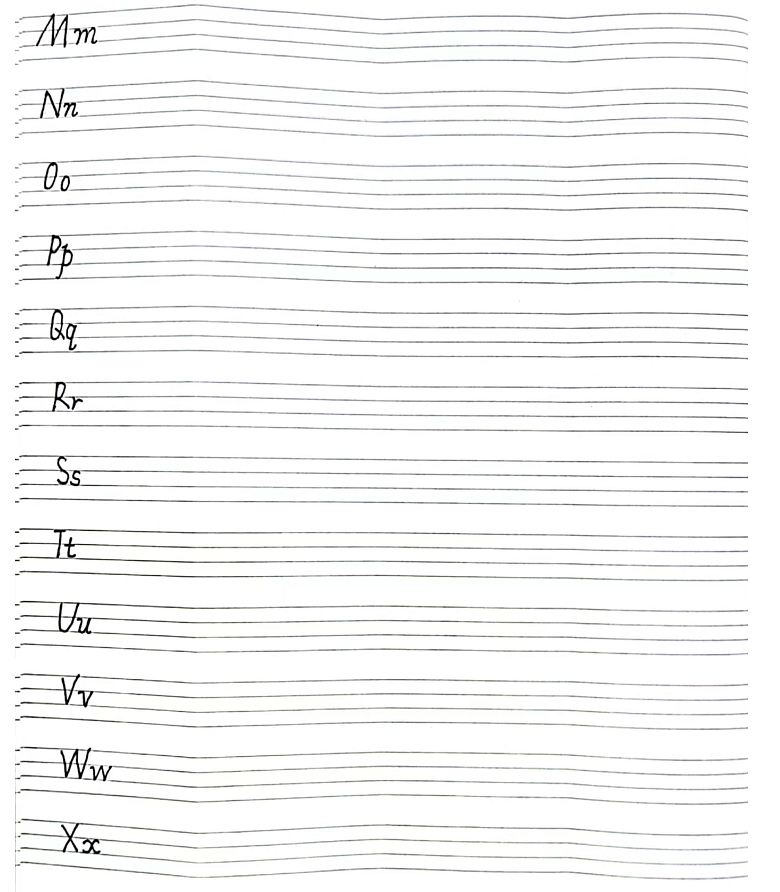 Mm
Nn
Oo
Pp
Qq
Rr
Ss
Tt
Uu
Vv
Ww
Xx